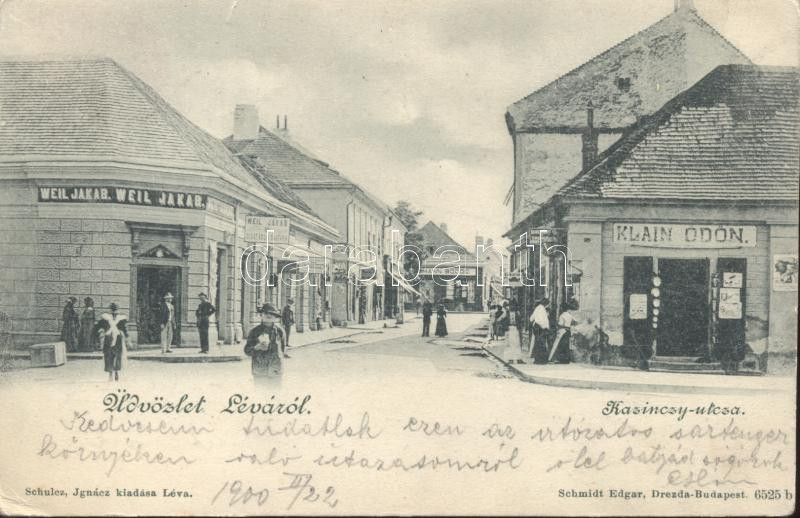 WEIL JAKAB. WEIL JAKAB.
WEIL JAKAB
KLAIN ÖDÖN.
darabanth
Üdvözlet Léváról.
Kazinczy-utcza.
Kedveseim tudatlak ezen az irtózatos sártenger
környéken való utazásomról ölel bátyád
Schulcz, Jgnácz kiadása Léva.
1900 III/22
Schmidt Edgar, Drezda-Budapest. 6525 b